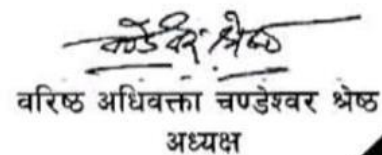 चण्डेश्वर श्रेष्ठ
वरिष्ठ अधिवक्ता चण्डेश्वर श्रेष्ठ
अध्यक्ष